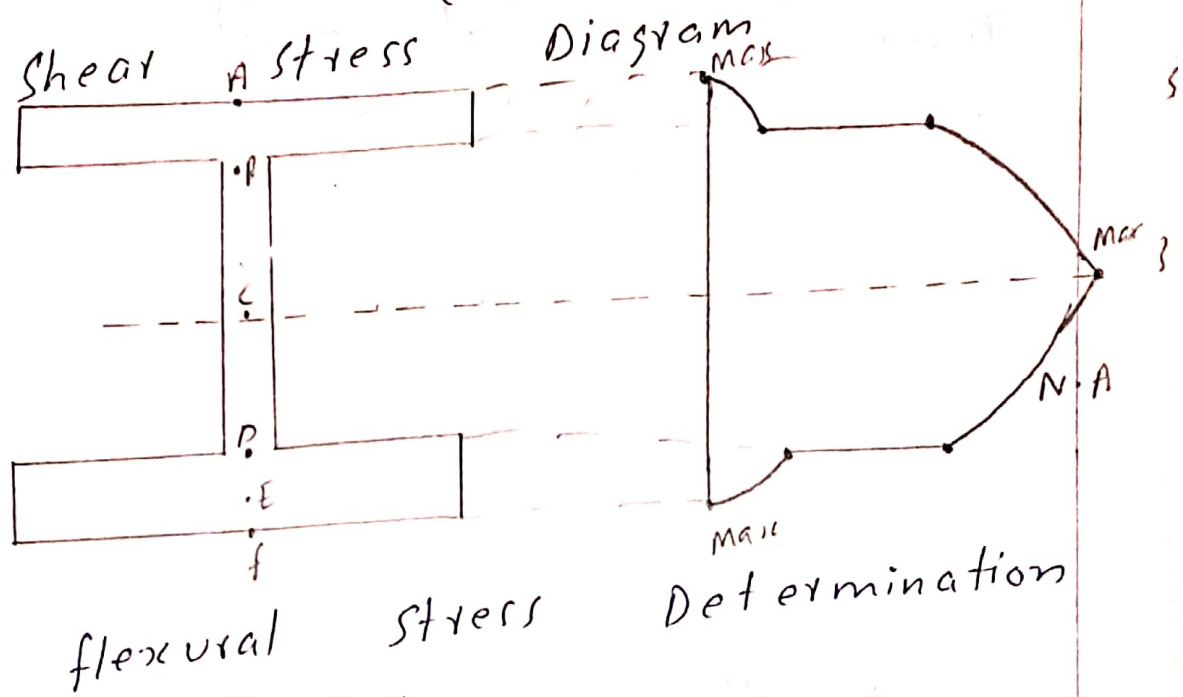 Shear Stress Diagram
A
Max
B
C
Max
N.A
D
E
f
Max
flexural Stress Determination